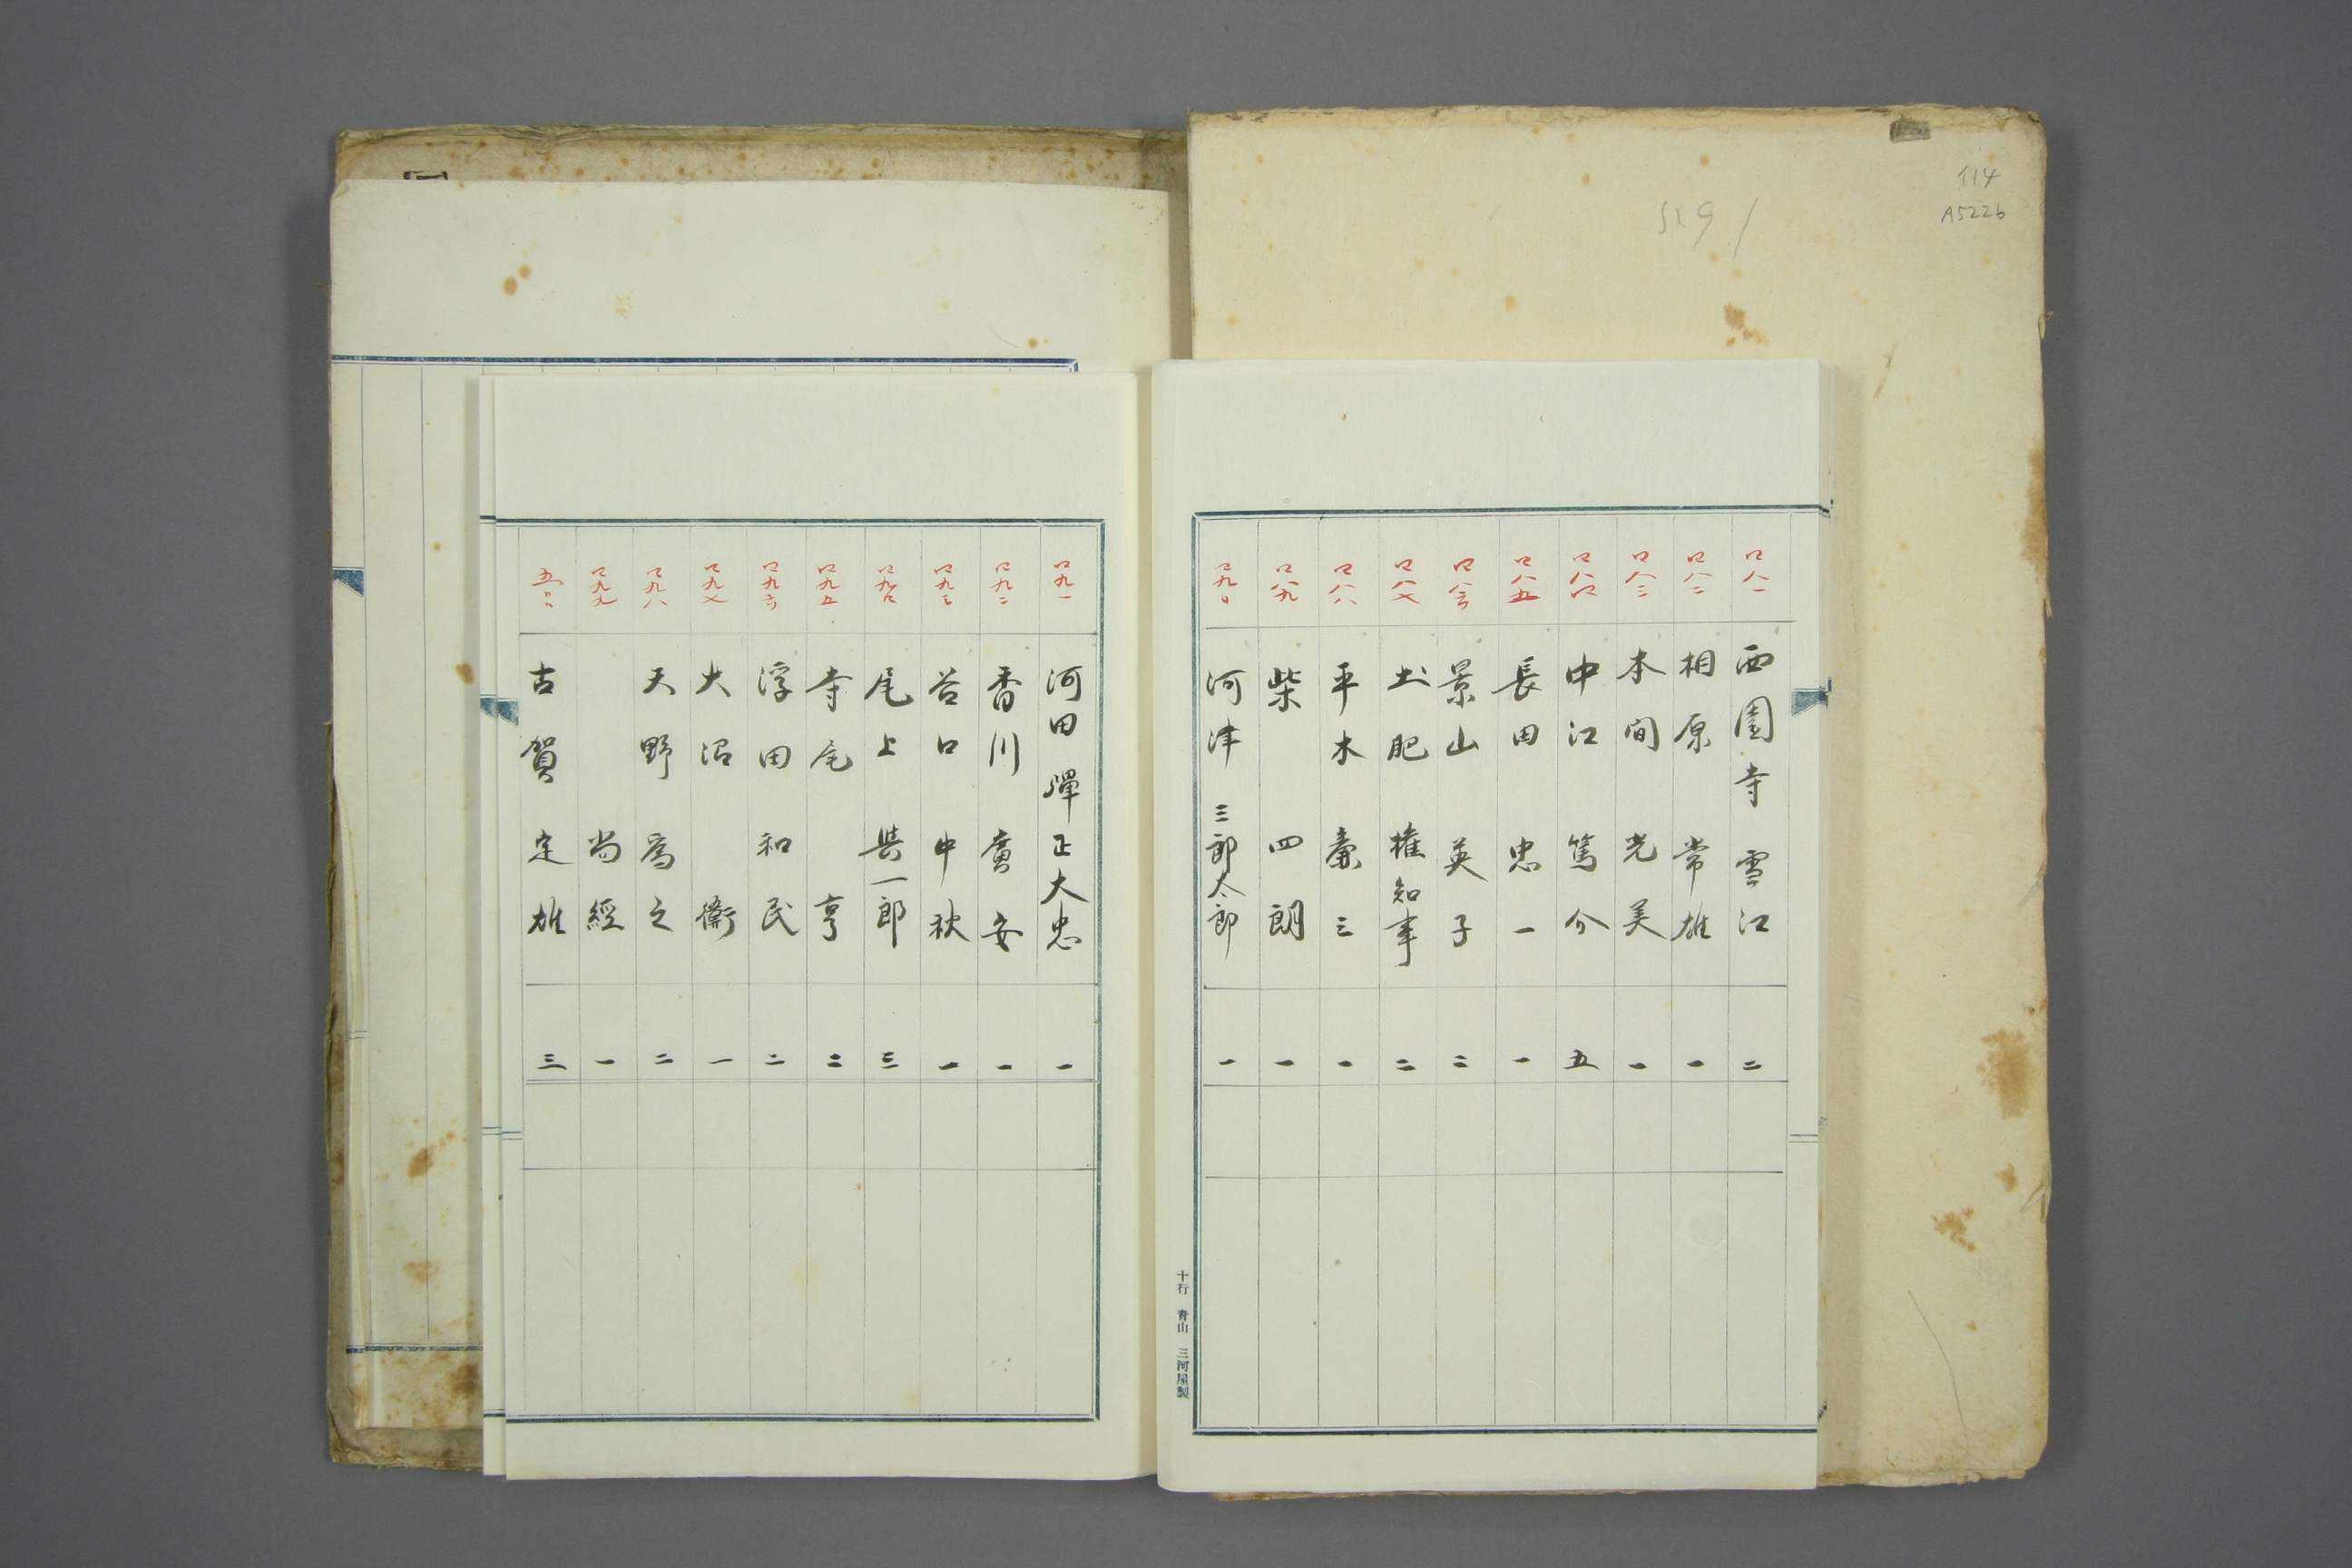 114
A5226
四八一 西園寺 雪江 二
四八二 相原 常雄 一
四八三 本間 光美 一
四八四 中江 篤介 五
四八五 長田 忠一 一
四八六 景山 英子 二
四八七 土肥 権知事 二
四八八 平木 三 一
四八九 柴 四朗 一
四九〇 河津 三郎太郎 一
十行 青山 三河屋製
四九一 河田 彈正大忠 一
四九二 香川 廣安 一
四九三 谷口 中秋 一
四九四 尾上 與一郎 三
四九五 寺尾 亨 二
四九六 浮田 和民 二
四九七 大沼 衛 一
四九八 天野 為之 二
四九九 尚經 一
五〇〇 古賀 定雄 三